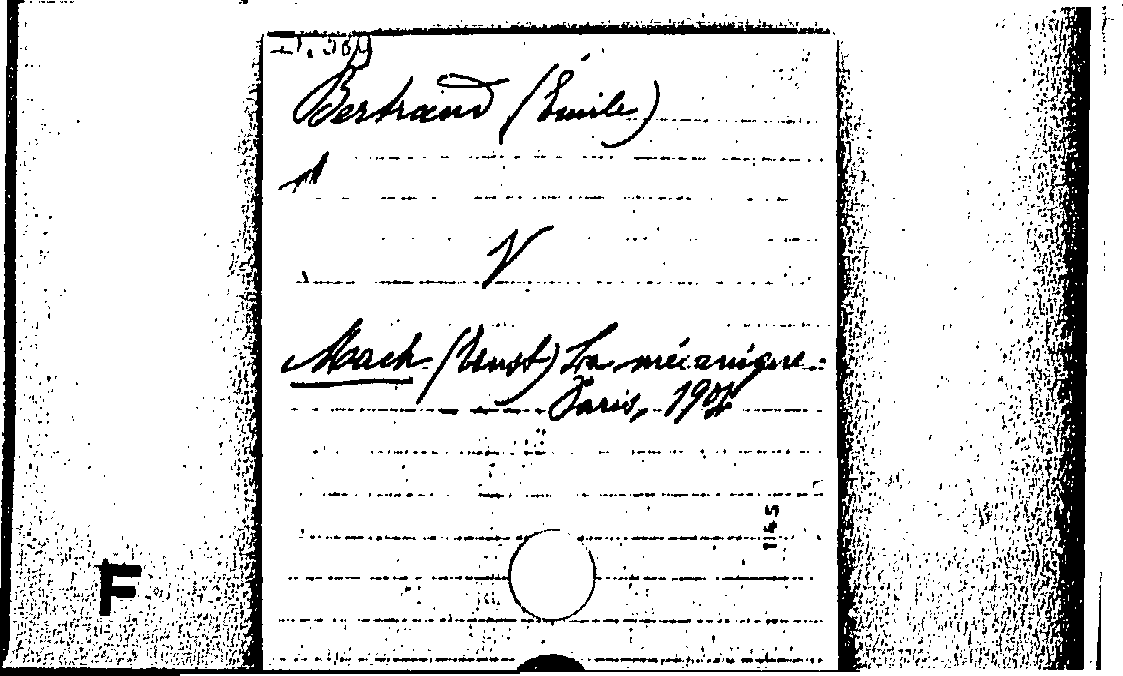 Bertrand (Émile)
V
Mach (Ernst) La mécanique.
Paris, 1904
1145
F